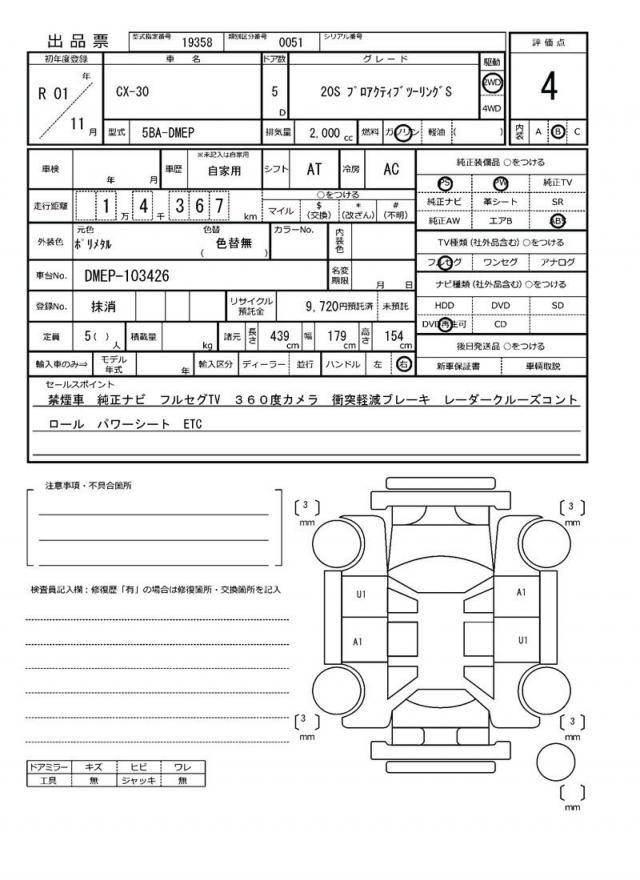 出品票 型式指定番号 19358 類別区分番号 0051 シリアル番号
初年度登録 車名 ドア数 グレード 駆動 評価点
R 01 年 11 月 CX-30 5 D 20S ﾌﾟﾛｱｸﾃｨﾌﾞﾂｰﾘﾝｸﾞS 2WD 4WD 4
型式 5BA-DMEP 排気量 2,000 cc 燃料 ガソリン 軽油 ( ) 内装 A B C
車検 年 月 車歴 ※未記入は自家用 自家用 シフト AT 冷房 AC
走行距離 1 万 4 千 3 6 7 km ○をつける マイル $ (交換) * (改ざん) # (不明)
外装色 元色 ﾎﾟﾘﾒﾀﾙ 色替 ( 色替無 ) カラーNo. 内装色
車台No. DMEP-103426 名変期限 月 日
登録No. 抹消 リサイクル預託金 9,720円預託済 未預託
定員 5( ) 人 積載量 kg 諸元 長さ 439 cm 幅 179 cm 高さ 154 cm
輸入車のみ⇒ モデル年式 年 輸入区分 ディーラー 並行 ハンドル 左 右
純正装備品 ○をつける
PS PW 純正TV
純正ナビ 革シート SR
純正AW エアB ABS
TV種類(社外品含む)○をつける
フルセグ ワンセグ アナログ
ナビ種類(社外品含む)○をつける
HDD DVD SD
DVD再生可 CD
後日発送品 ○をつける
新車保証書 車輌取説
セールスポイント
禁煙車 純正ナビ フルセグTV 360度カメラ 衝突軽減ブレーキ レーダークルーズコント
ロール パワーシート ETC
注意事項・不具合箇所
検査員記入欄：修復歴「有」の場合は修復箇所・交換箇所を記入
ドアミラー キズ ヒビ ワレ
工具 無 ジャッキ 無
3 mm
3 mm
U1 A1
A1 U1
3 mm
3 mm
mm